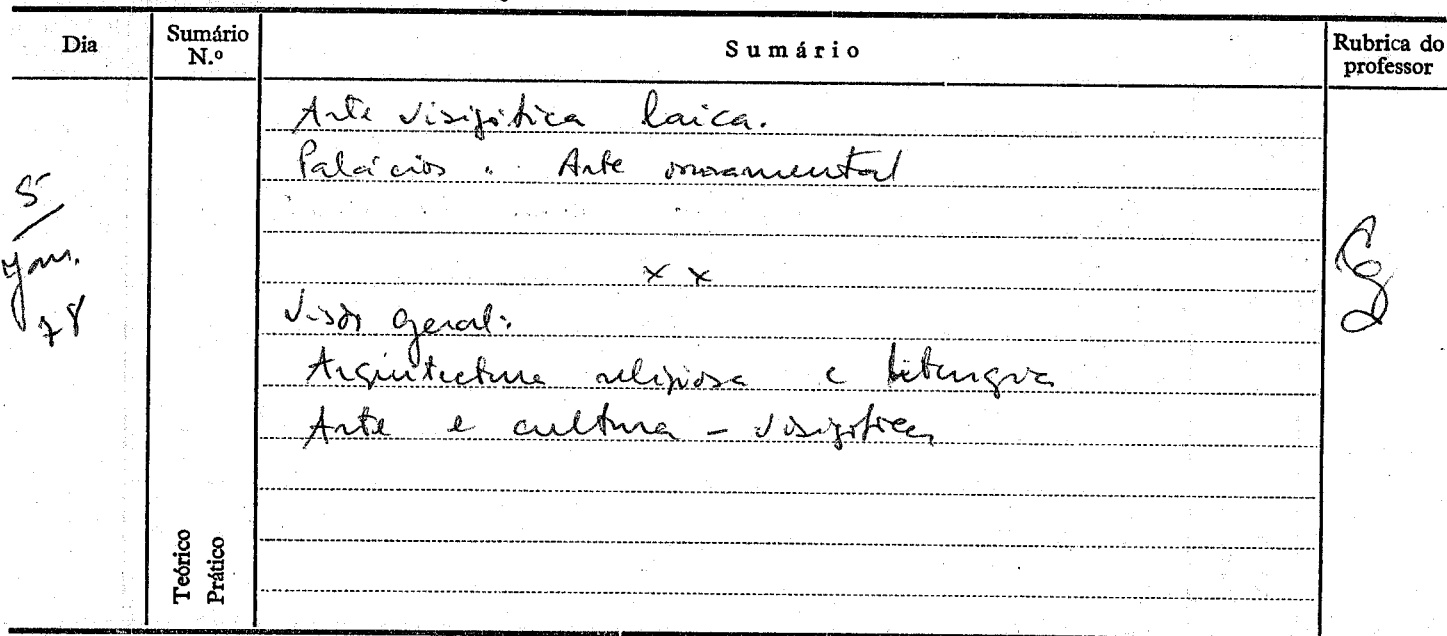 Dia
Sumário N.º
Sumário
Rubrica do professor
5/
Jan.
78
Arte visigótica laica.
Palácios. Arte ornamental
x x
Visão geral:
Arquitectura religiosa e liturgia
Arte e cultura - visigótica
Teórico
Prático